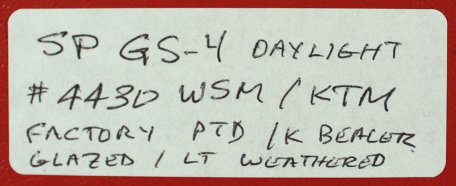 SP GS-4 DAYLIGHT
#4430 WSM / KTM
FACTORY PTD / K BEALER
GLAZED / LT WEATHERED